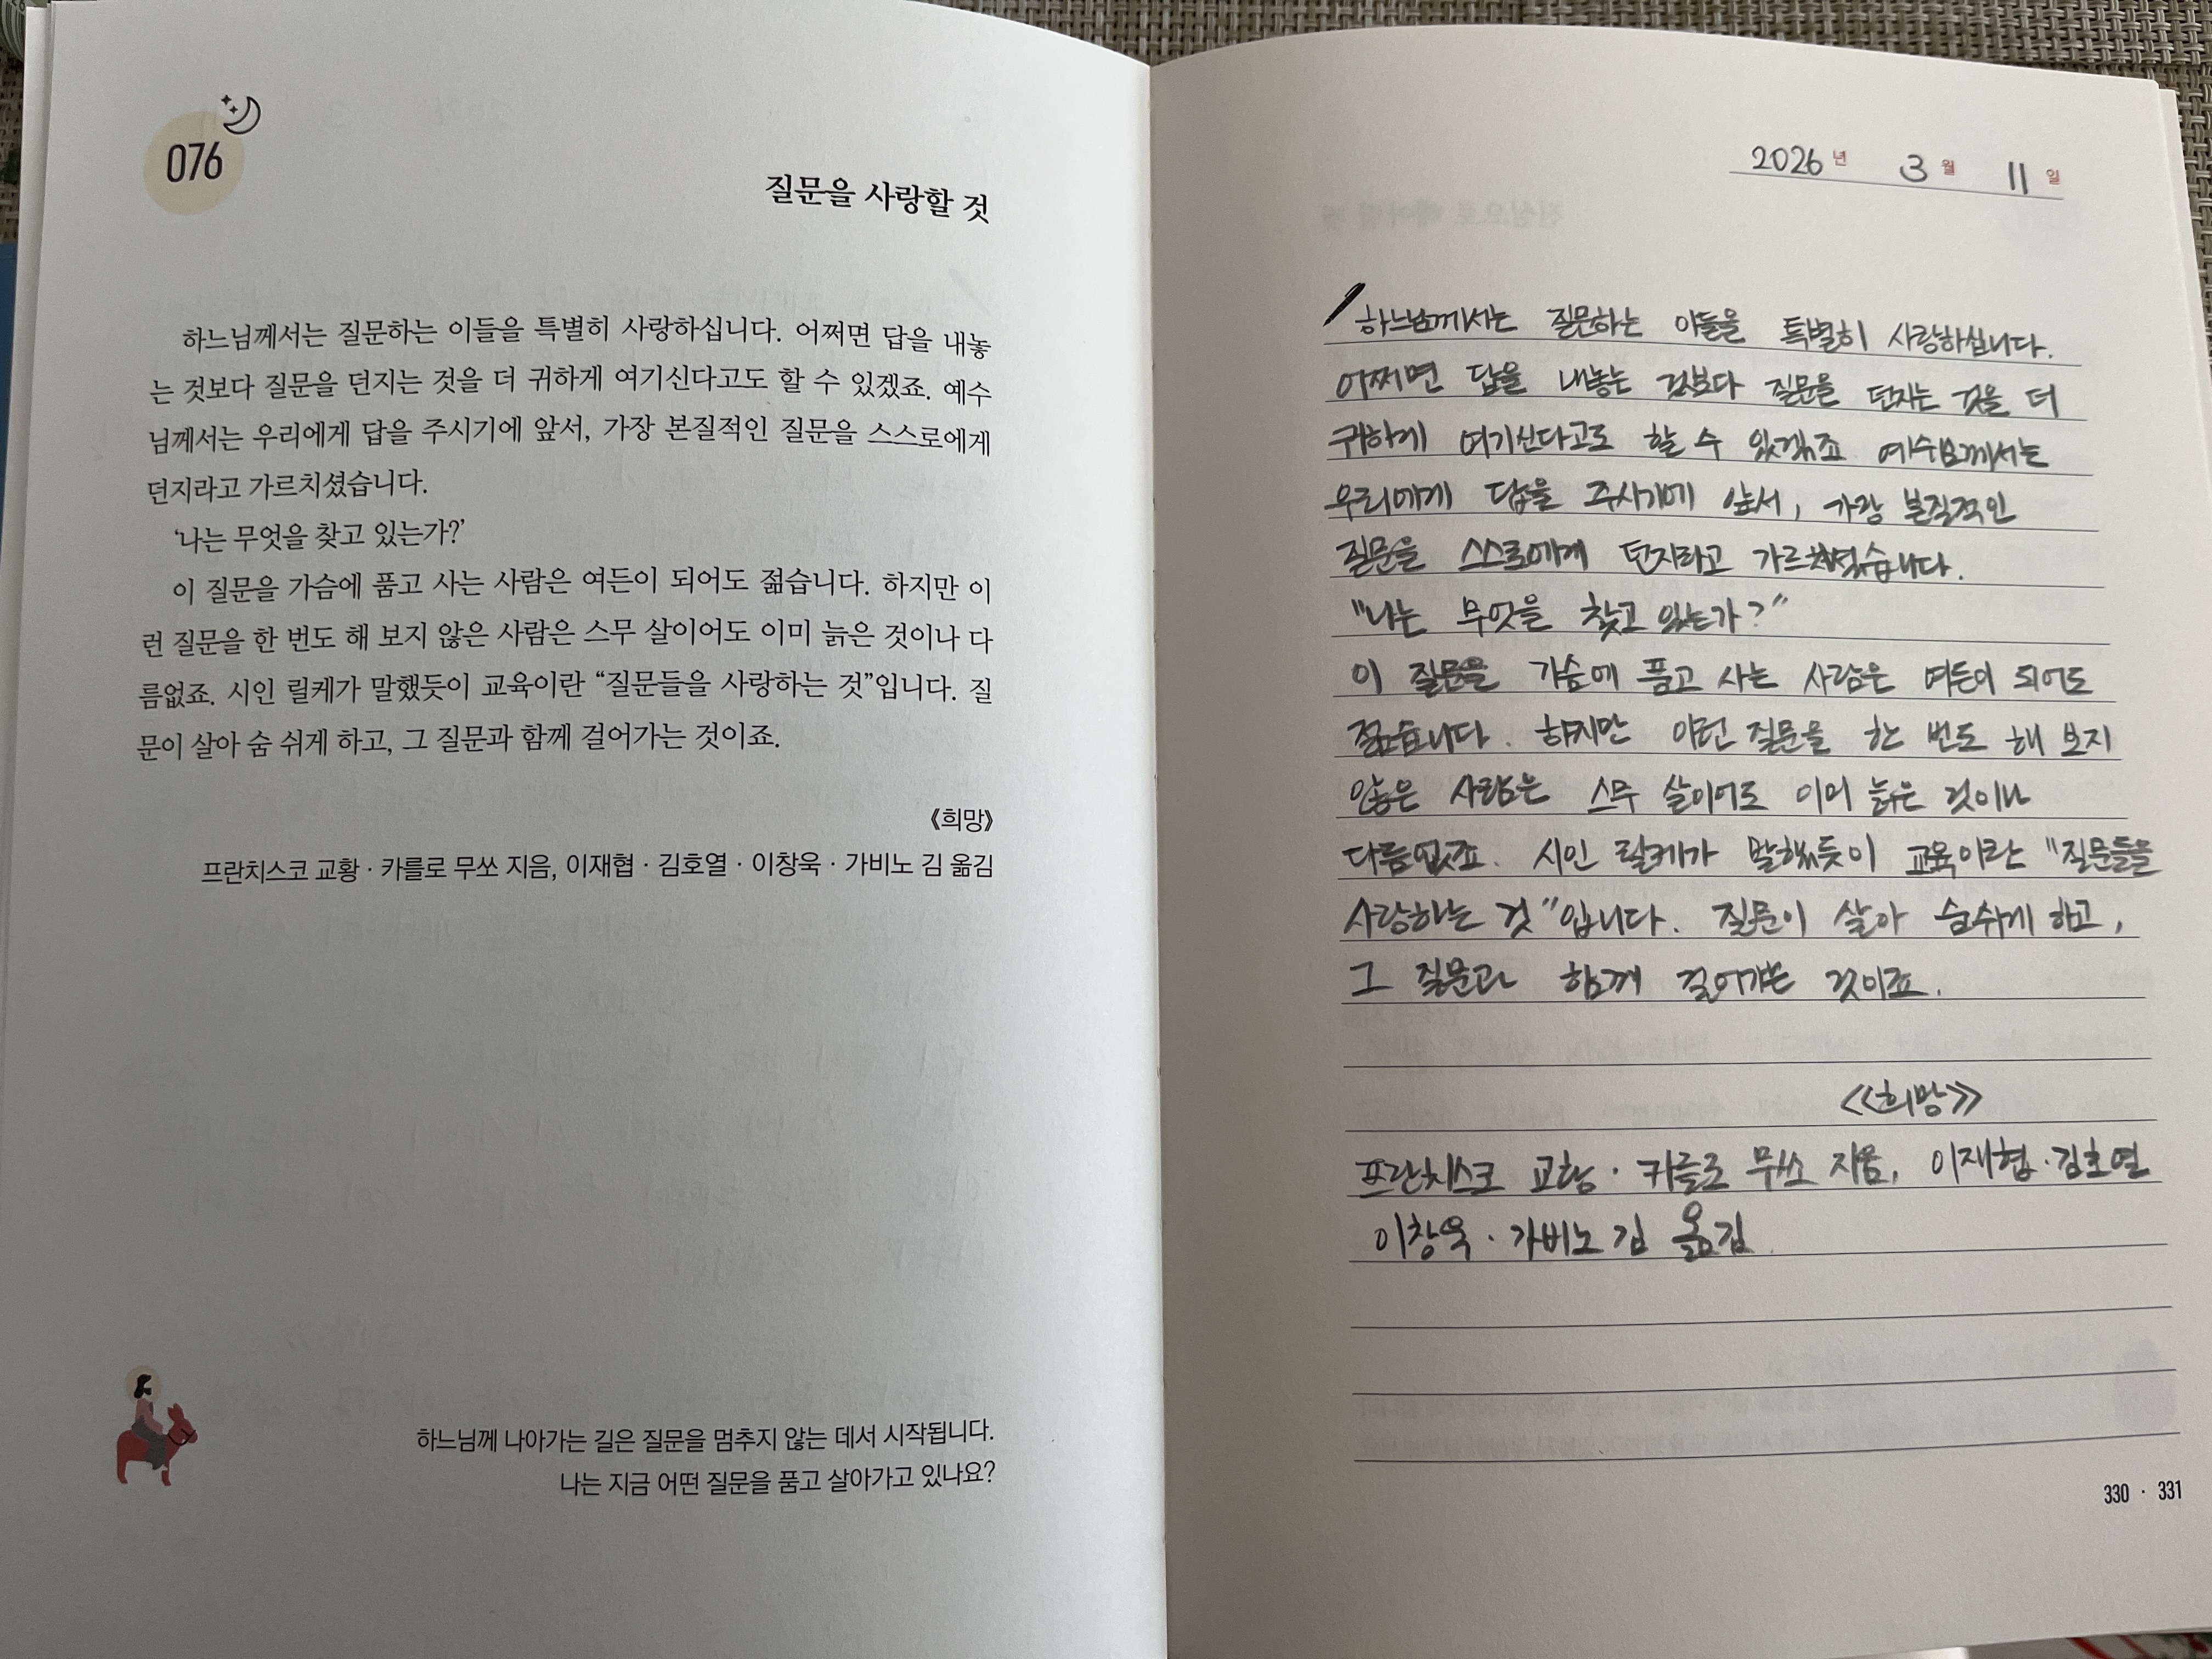 076
질문을 사랑할 것
하느님께서는 질문하는 이들을 특별히 사랑하십니다. 어쩌면 답을 내놓
는 것보다 질문을 던지는 것을 더 귀하게 여기신다고도 할 수 있겠죠. 예수
님께서는 우리에게 답을 주시기에 앞서, 가장 본질적인 질문을 스스로에게
던지라고 가르치셨습니다.
‘나는 무엇을 찾고 있는가?’
이 질문을 가슴에 품고 사는 사람은 여든이 되어도 젊습니다. 하지만 이
런 질문을 한 번도 해 보지 않은 사람은 스무 살이어도 이미 늙은 것이나 다
름없죠. 시인 릴케가 말했듯이 교육이란 “질문들을 사랑하는 것”입니다. 질
문이 살아 숨 쉬게 하고, 그 질문과 함께 걸어가는 것이죠.
《희망》
프란치스코 교황 · 카를로 무쏘 지음, 이재협 · 김호열 · 이창욱 · 가비노 김 옮김
하느님께 나아가는 길은 질문을 멈추지 않는 데서 시작됩니다.
나는 지금 어떤 질문을 품고 살아가고 있나요?
2026년 3월 11일
하느님께서는 질문하는 이들을 특별히 사랑하십니다.
어쩌면 답을 내놓는 것보다 질문을 던지는 것을 더
귀하게 여기신다고도 할 수 있겠죠 예수님께서는
우리에게 답을 주시기에 앞서, 가장 본질적인
질문을 스스로에게 던지라고 가르치셨습니다.
"나는 무엇을 찾고 있는가?"
이 질문을 가슴에 품고 사는 사람은 여든이 되어도
젊습니다. 하지만 이런 질문을 한 번도 해 보지
않은 사람은 스무 살이어도 이미 늙은 것이나
다름없죠. 시인 릴케가 말했듯이 교육이란 "질문들을
사랑하는 것"입니다. 질문이 살아 숨쉬게 하고,
그 질문과 함께 걸어가는 것이죠.
<<희망>>
프란치스코 교황 · 카를로 무쏘 지음, 이재협 · 김호열
이창욱 · 가비노 김 옮김.
330 · 331